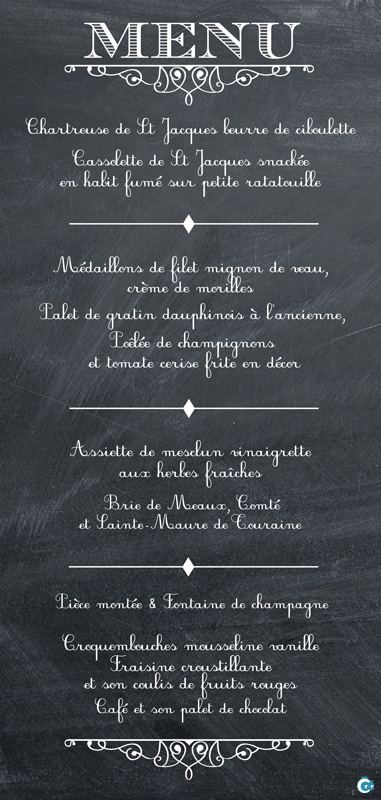 MENU
Chartreuse de St Jacques beurre de ciboulette
Cassolette de St Jacques snackée
en habit fumé sur petite ratatouille
Médaillons de filet mignon de veau,
crème de morilles
Palet de gratin dauphinois à l'ancienne,
Poêlée de champignons
et tomate cerise frite en décor
Assiette de mesclun vinaigrette
aux herbes fraîches
Brie de Meaux, Comté
et Sainte-Maure de Touraine
Pièce montée & Fontaine de champagne
Croquembouches mousseline vanille
Fraisine croustillante
et son coulis de fruits rouges
Café et son palet de chocolat